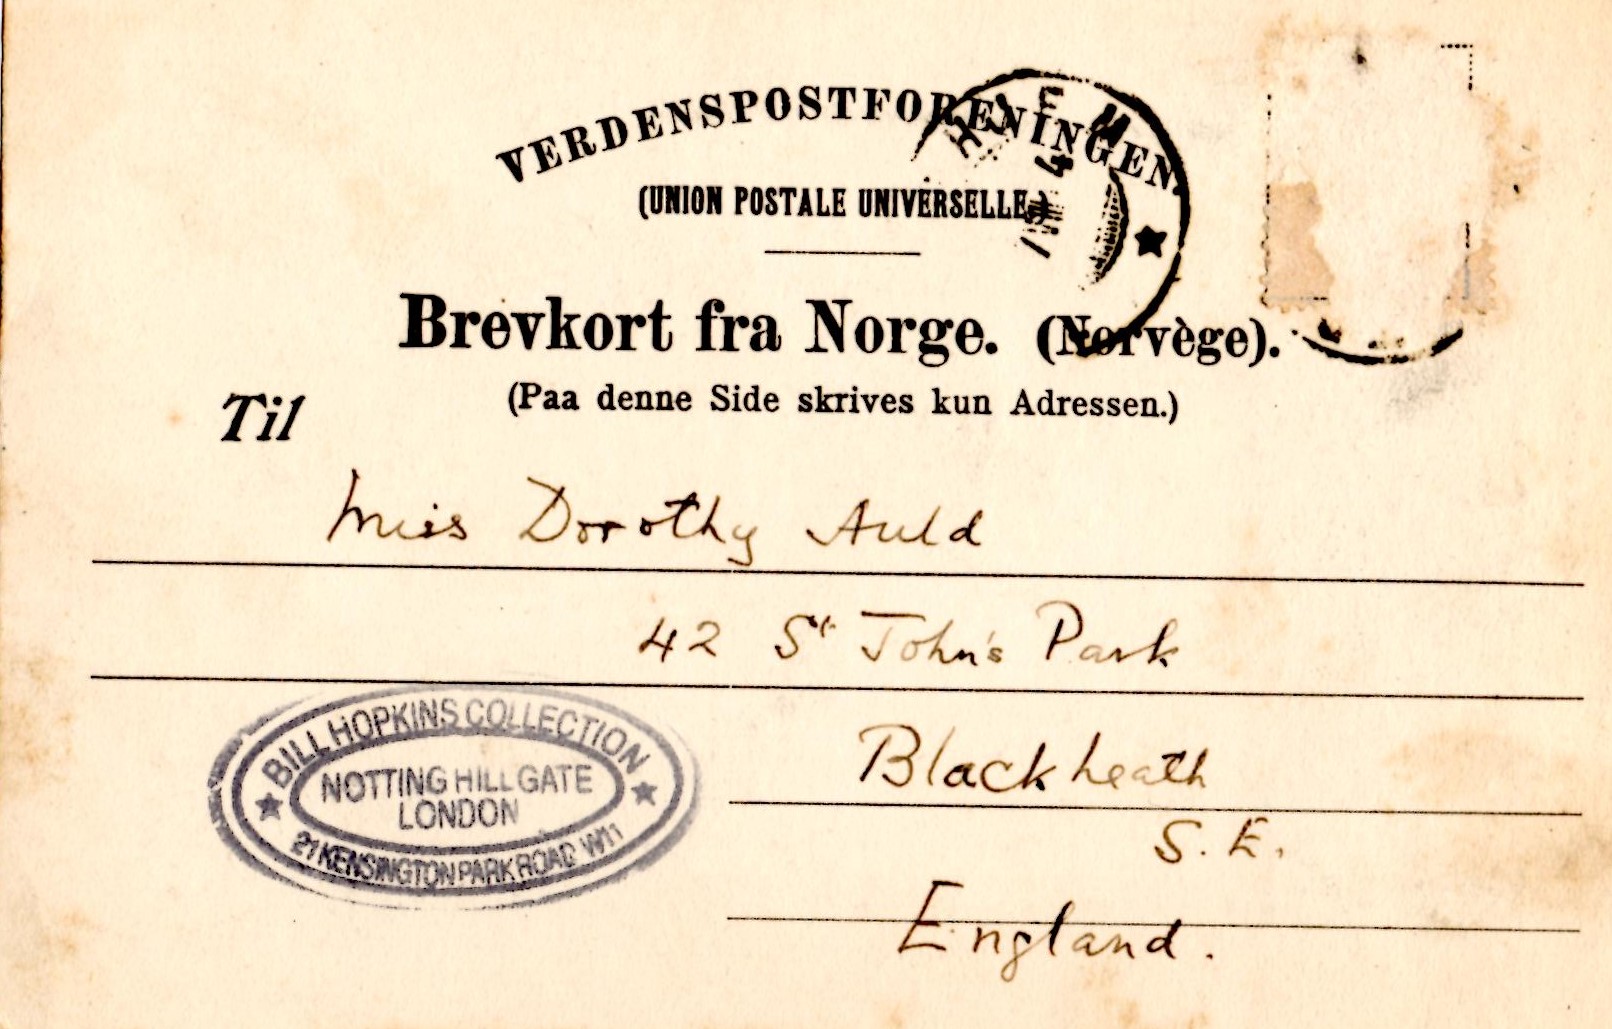 VERDENSPOSTFORENINGEN.
(UNION POSTALE UNIVERSELLE.)
Brevkort fra Norge. (Norvège).
(Paa denne Side skrives kun Adressen.)
Til
Miss Dorothy Auld
42 St John's Park
Blackheath
S. E.
England.
BILL HOPKINS COLLECTION
NOTTING HILL GATE
LONDON
21 KENSINGTON PARK ROAD W11